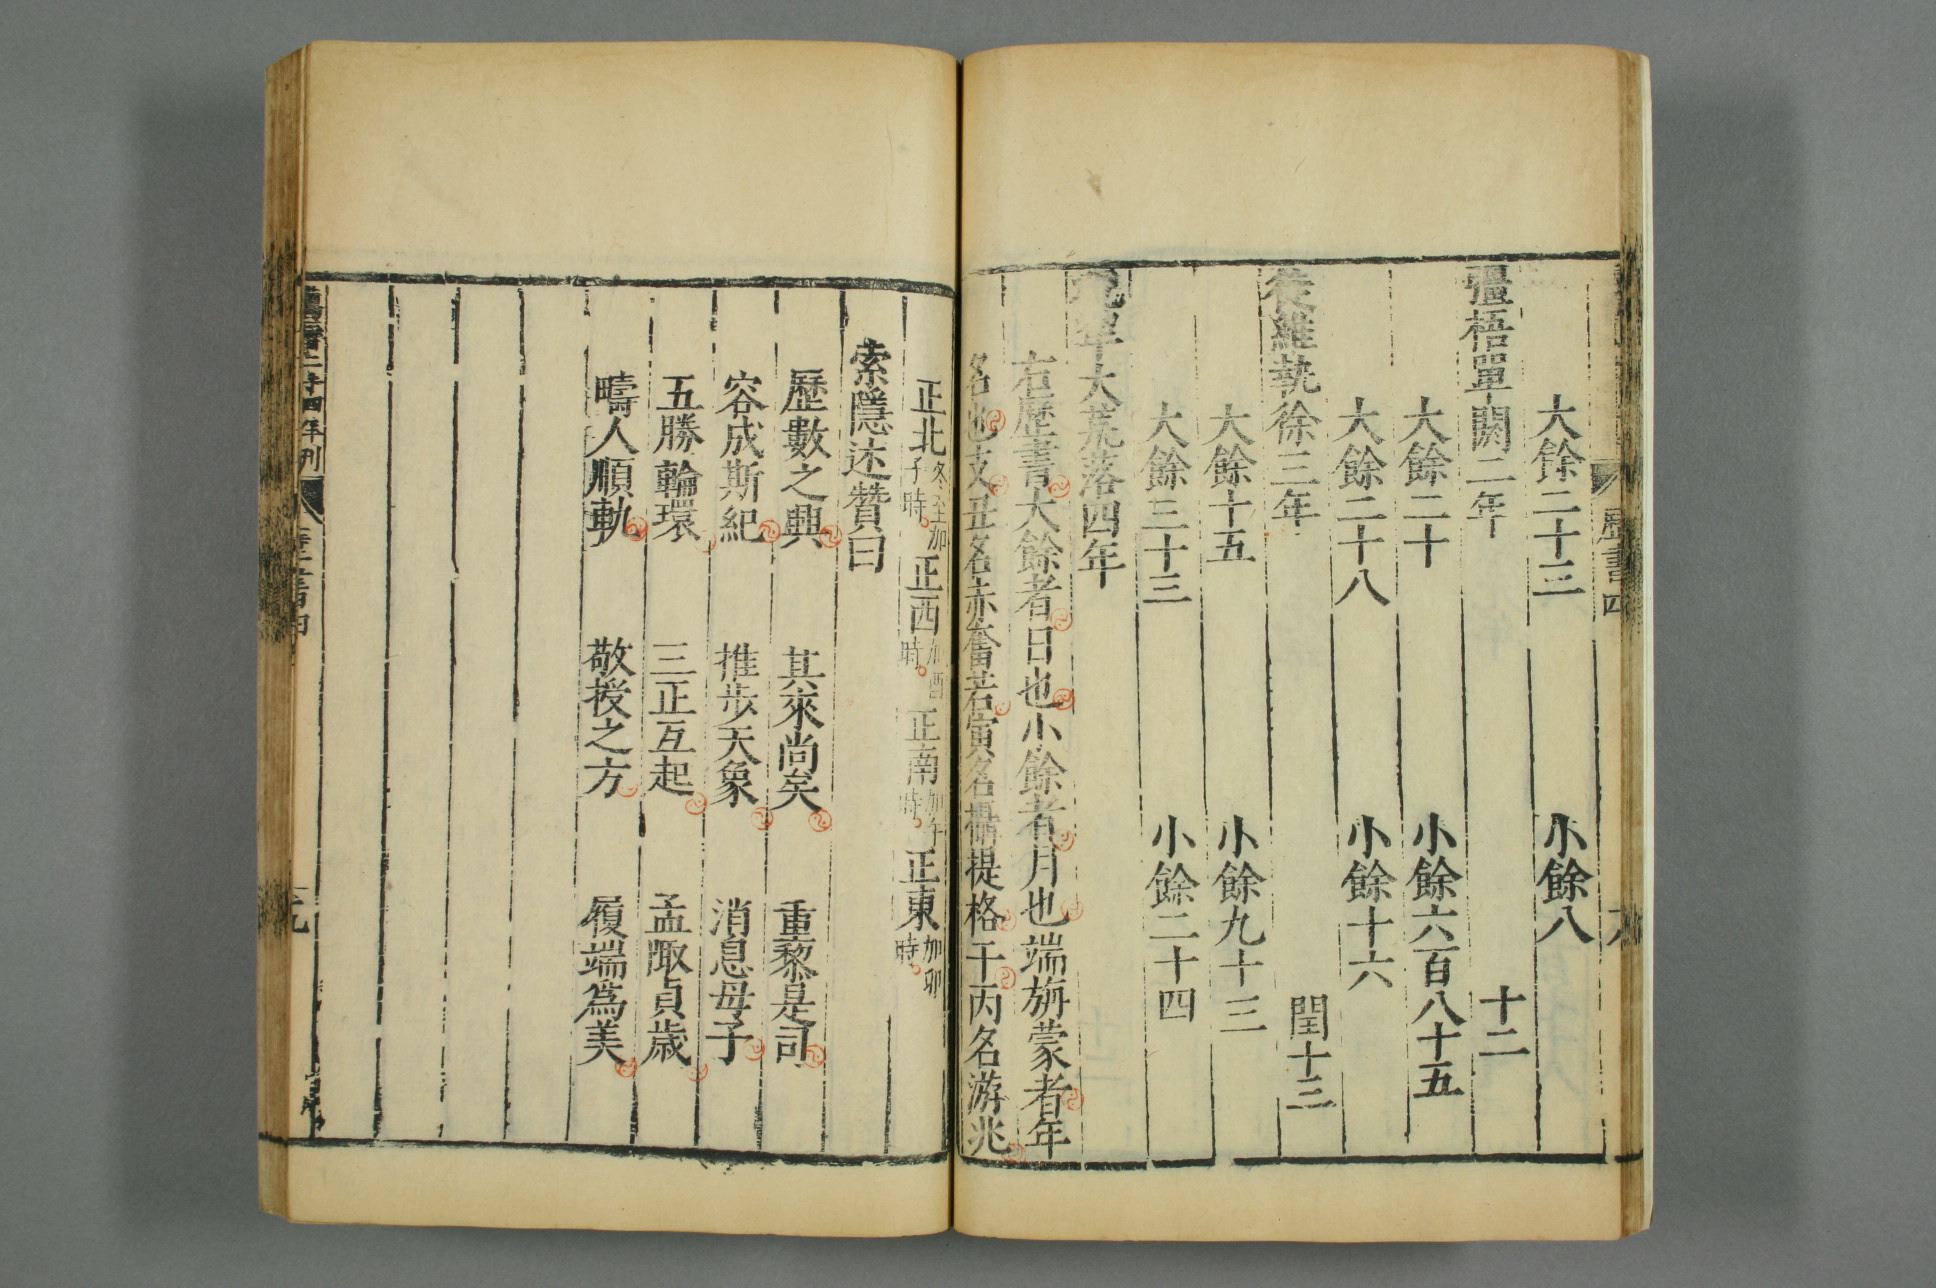 歷書四
大餘二十三　小餘八
彊梧單閼二年　十二
大餘二十　小餘六百八十五
大餘二十八　小餘十六
徒維執徐三年　閏十三
大餘十五　小餘九十三
大餘三十三　小餘二十四
祝犂大荒落四年
右歷書大餘者日也小餘者月也端旃蒙者年
名也支丑名赤奮若寅名攝提格干丙名游兆
正北冬至加子時正西加酉時正南加午時正東加卯時
索隱述贊曰
歷數之興　其來尚矣　重黎是司
容成斯紀　推步天象　消息母子
五勝輪環　三正互起　孟陬貞歳
疇人順軌　敬授之方　履端爲美
萬曆二十四年刊